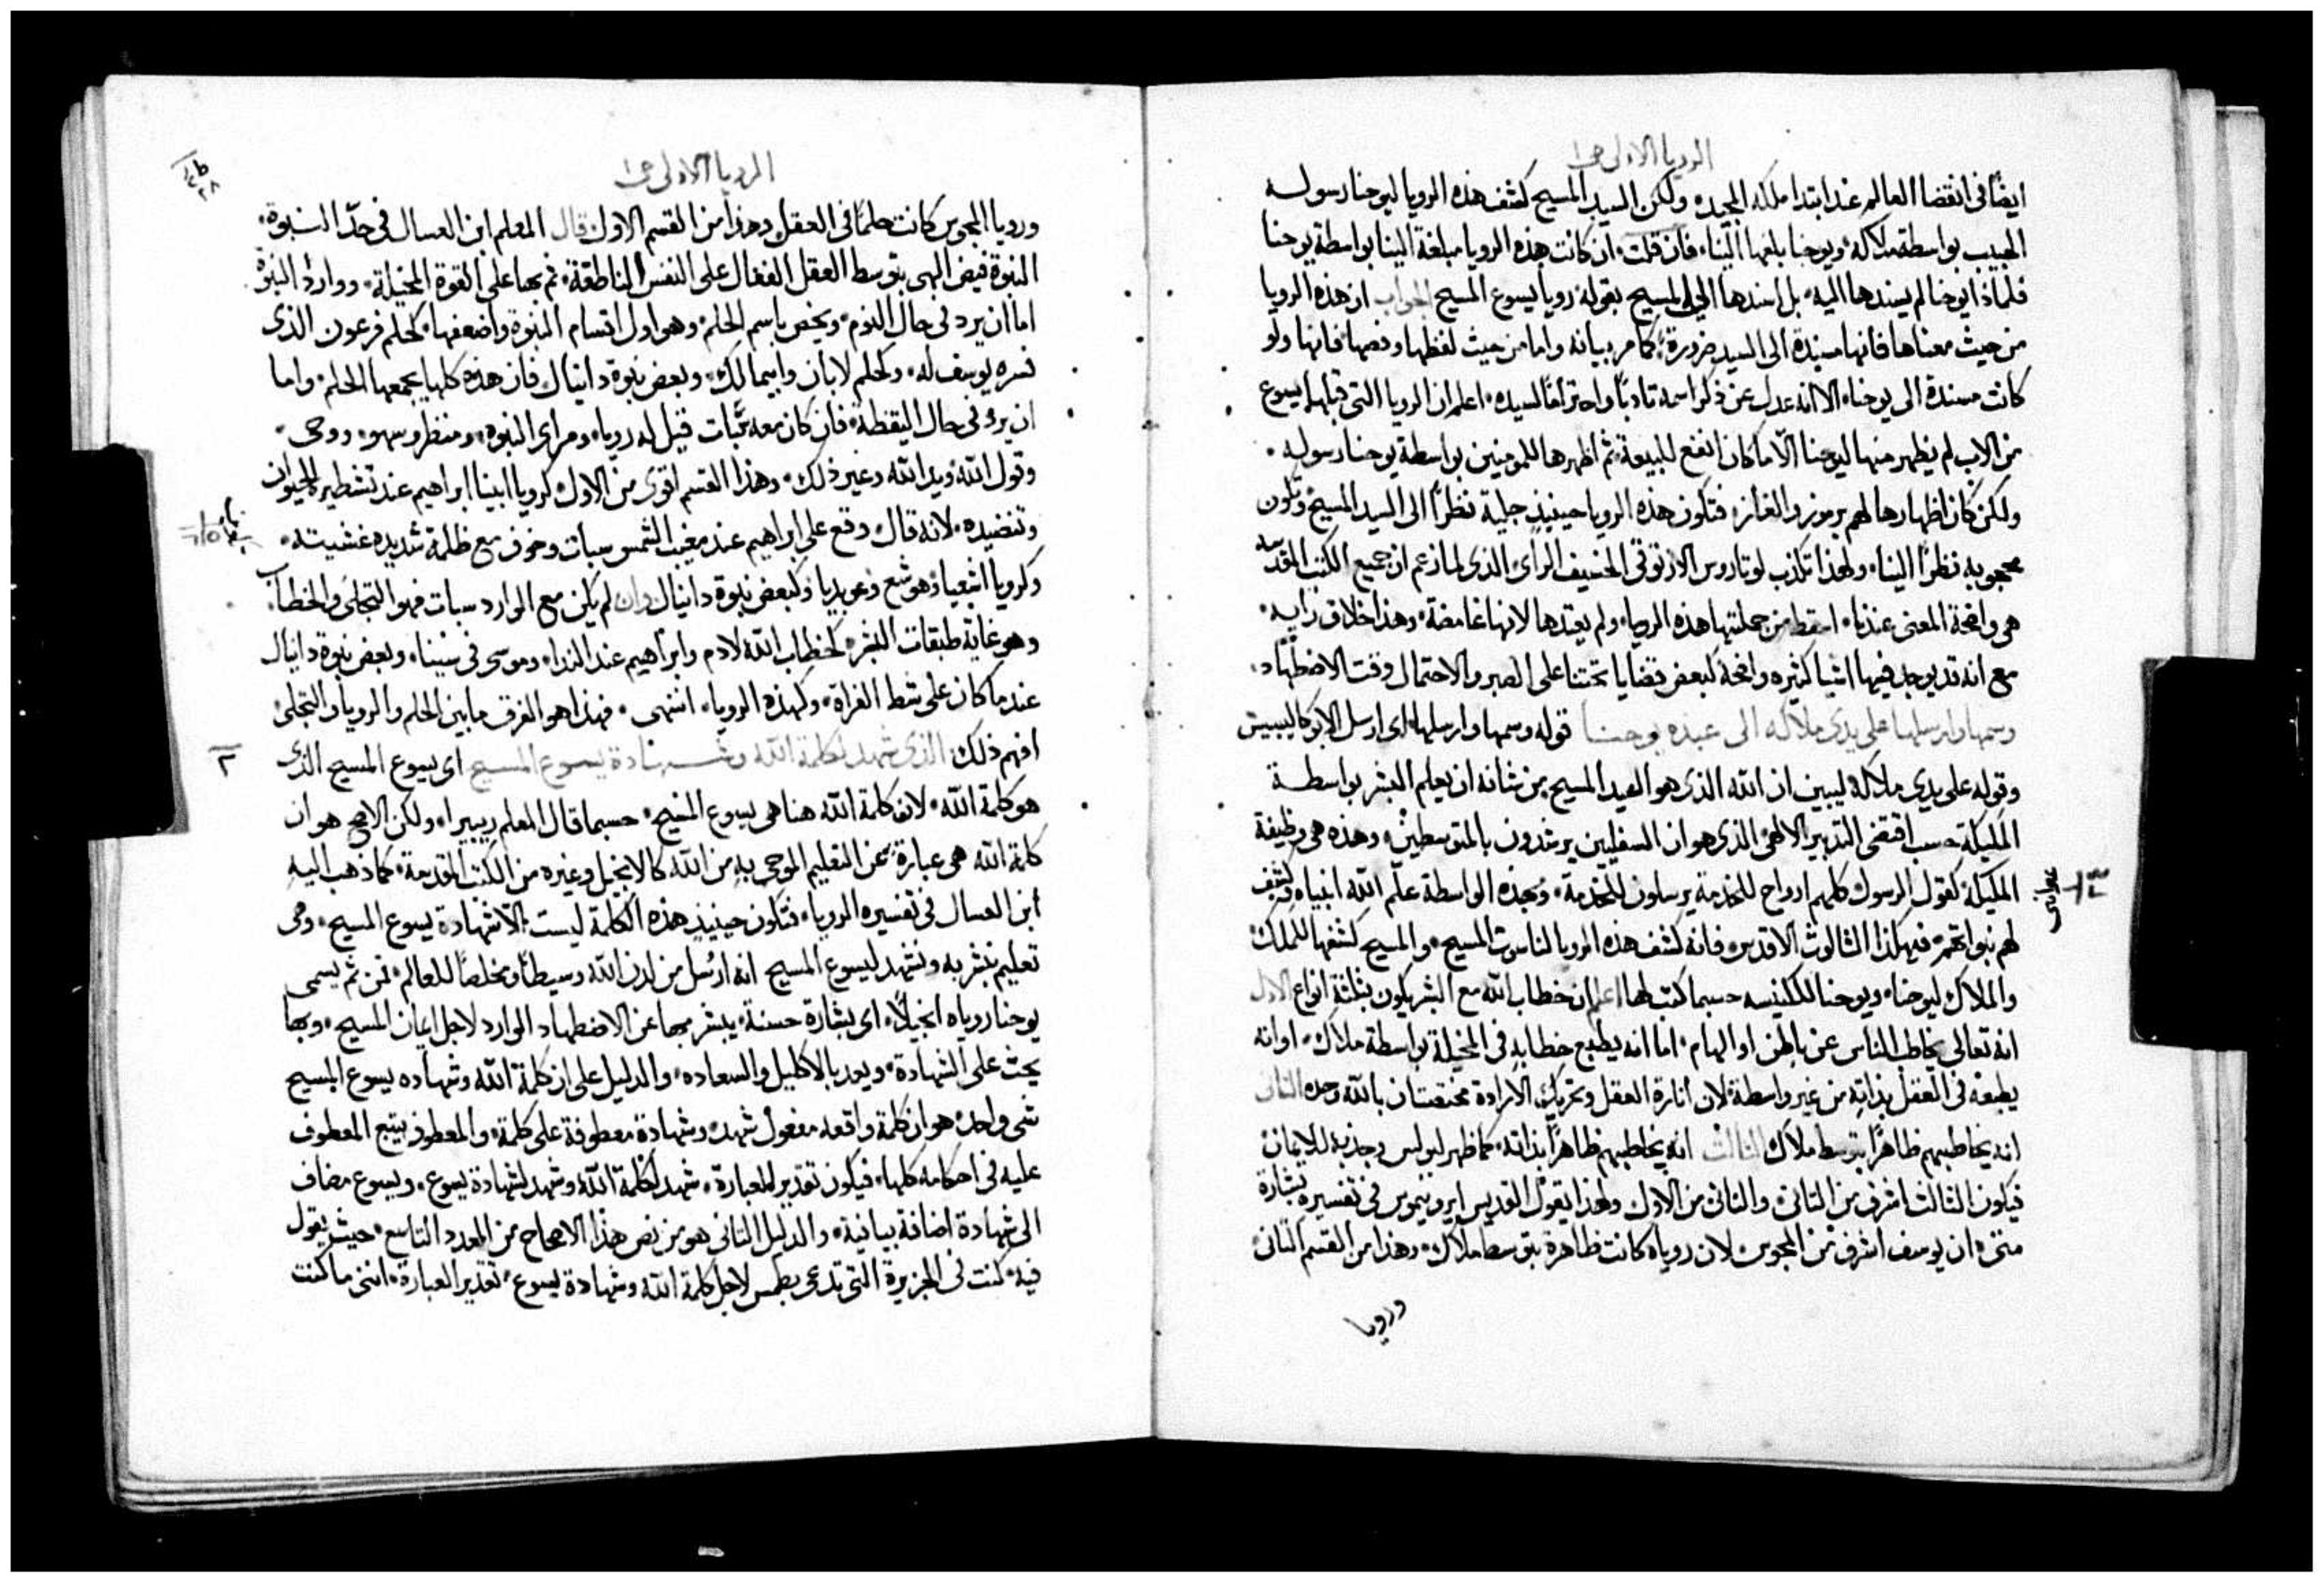 الرويا الاولى ص١
ايضًا فى انقضا العالم عند ابتدا ملكه المجيده ولكن السيد المسيح كشف هذه الرويا ليوحنا رسوله
الحبيب بواسطة ملاكه، ويوحنا بلغها الينا، فان قلت، ان كانت هذه الرويا مبلغة الينا بواسطة يوحنا
فلماذا يوحنا لم يسندها اليه، بل اسندها الى المسيح بقوله رويا يسوع المسيح الجواب ان هذه الرويا
من حيث معناها فانها مسندة الى السيد ضرورة، كما مر بيانه واما من حيث لفظها ونصها فانها ولو
كانت مسندة الى يوحنا، الا انه عدل عن ذكر اسمه تادبًا واحترامًا لسيده، اعلم ان الرويا التى قبلها يسوع
من الاب لم يظهر منها ليوحنا الّا ما كان انفع للبيعة، ثم اظهرها للمومنين بواسطة يوحنا رسوله.
ولكن كان اظهارها لهم برموز والغاز، فتكون هذه الرويا حينيذٍ جلية نظرًا الى السيد المسيح وتكون
محجوبه نظرًا الينا، ولهذا تكذب لوتاروس الارتوقى الخسيف الراى الذى لما زعم ان جميع الكتب المقدسه
هى واضحة المعنى عندنا، اسقط من جملتها هذه الرويا، ولم يعتدها لانها غامضة، وهذا خلاف رايه،
مع انه قد يوجد فيها اشيا كثيره واضحة كبعض قضايا تحثنا على الصبر والاحتمال وقت الاضطهاد.
وسمها وارسلها على يدى ملاكه الى عبده يوحنا قوله وسمها وارسلها، اى ارسل الابوكاليبسيس
وقوله على يدى ملاكه ليبين ان الله الذى هو السيد المسيح، من شانه ان يعلم البشر بواسطة
المليكة حسب اقتضى التدبير الالهى الذى هو ان السفليين يرشدون بالمتوسطين، وهذه هى وظيفة
المليكة كقول الرسول كلهم ارواح للخدمة يرسلون للخدمة، وبهذه الواسطة علّم الله انبياه وكشف
عبرانى ص١
لهم نبواتهم، فهكذا الثالوث الاقدس، فانه كشف هذه الرويا لناسوت المسيح، والمسيح كشفها للملاك
والملاك ليوحنا، ويوحنا للكنيسه حسبما كتب لها اعلم ان خطاب الله مع البشر يكون بثلثة انواع الاول
انه تعالى يخاطب الناس عن باطن او الهام، اما انه يطبع خطابه فى المخيلة بواسطة ملاك، او انه
يطبعه فى العقل بذاته من غير واسطة، لان انارة العقل وتحريك الارادة مختصتان بالله وحده الثانى
انه يخاطبهم ظاهرًا بتوسط ملاك الثالث انه يخاطبهم ظاهرًا بذاته، كما ظهر لبولس وجذبه للايمان
فيكون الثالث اشرف من الثانى، والثانى من الاول ولهذا يقول القديس ايرونيموس فى تفسيره بشارة
متى، ان يوسف اشرف من المجوس لان روياه كانت ظاهرة بتوسط ملاك، وهذا من القسم الثانى
ورويا
الرويا الاولى ص١
ورويا المجوس كانت حلمًا فى العقل وهذا من القسم الاول قال المعلم ابن العسال فى حدّ النبوة،
النبوة فيض الهى بتوسط العقل الفعّال على النفس الناطقة، ثم بها على القوة المخيلة، ووارد النبوة
اما ان يرد فى حال النوم، ويخص باسم الحلم، وهو اول اقسام النبوة واضعفها، كحلم فرعون الذى
فسره يوسف له، وكحلم لابان وابيمالك، وبعض نبوة دانيال فان هذه كلها يجمعها الحلم، واما
ان يرد فى حال اليقظة، فان كان معه سبات قيل له رويا، ومراى النبوه، ومنظر وسهو، ووحى،
وقول الله ويد الله وغير ذلك، وهذا القسم اقوى من الاول كرويا ابينا ابراهيم عند تشطيره الحيوان
وتنضيده، لانه قال، وقع على ابراهيم عند مغيب الشمس سبات وخوف مع ظلمة شديده غشيته،
وكرويا اشعيا وهوشع وعوبديا وكبعض نبوة دانيال وان لم يكن مع الوارد سبات فهو التجلى والخطاب.
وهو غاية طبقات البشر، كخطاب الله لادم وابراهيم عند الندا، وموسى فى سينا، وبعض نبوة دانيال
عند ما كان على شط الفراة، وكهذه الرويا، انتهى، فهذا هو الفرق ما بين الحلم والرويا والتجلى
افهم ذلك الذى شهد لكلمة الله وشهادة يسوع المسيح اى يسوع المسيح الذى
٢
هو كلمة الله، لان كلمة الله هنا هى يسوع المسيح، حسبما قال المعلم ريبيرا، ولكن الاصح هو ان
كلمة الله هى عبارة عن التعليم الموحى به من الله كالانجيل وغيره من الكتب المقدسة، كما ذهب اليه
ابن العسال فى تفسيره الرويا، فتكون حينيذٍ هذه الكلمة ليست الّا شهادة يسوع المسيح، وهى
تعليم نبشر به ونشهد ليسوع المسيح انه ارُسل من لدن الله وسيطًا ومخلصًا للعالم، فمن ثم يسمى
يوحنا روياه انجيلًا، اى بشارة حسنة، يبشر بها عن الاضطهاد الوارد لاجل ايمان المسيح، وبها
يحث على الشهادة، ويعد بالاكليل والسعاده، والدليل على ان كلمة الله وشهاده يسوع المسيح
شى واحد، هو ان كلمة واقعه مفعول شهد، وشهادة معطوفة على كلمة، والمعطوف يتبع المعطوف
عليه فى احكامه كلها، فيكون تقدير العبارة، شهد لكلمة الله وشهد لشهادة يسوع، ويسوع مضاف
الى شهادة اضافة بيانية، والدليل الثانى هو من نص هذا الاصحاح من العدد التاسع، حيث يقول
فيه، كنت فى الجزيرة التى تدعى بطمس لاجل كلمة الله وشهادة يسوع، تقدير العبارة، اننى ما كنت